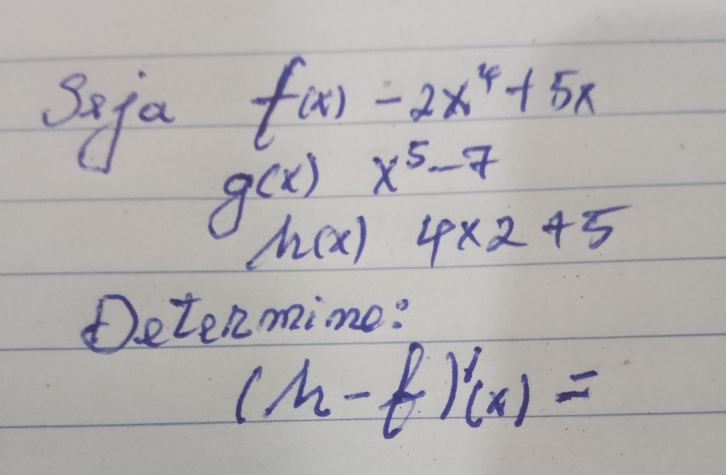 Seja f(x) - 2x⁴ + 5x
g(x) x⁵ - 7
h(x) 4x2 + 5
Determine:
(h - f)'(x) =